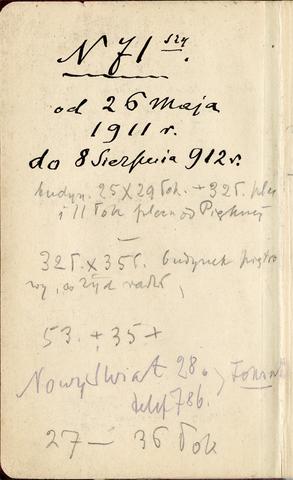 N 71 szy.
od 26 Maja
1911 r.
do 8 Sierpnia 912 r.
budyn. 25 X 29 łok. + 32 ł. plac
i 11 łok placu od Pięknej
32 ł. X 35 ł. budynek
53. + 35 +
Nowy Świat 28.
telef 786.
27 — 36 łok